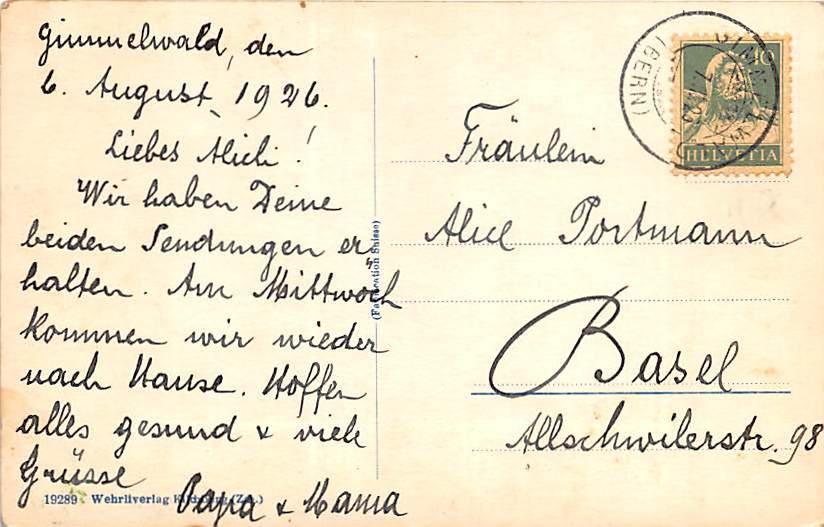 Gimmelwald, den
6. August 1926.
Liebes Alicli!
Wir haben Deine
beiden Sendungen er„
halten. Am Mittwoch
kommen wir wieder
nach Hause. Hoffen
alles gesund & viele
Grüsse
Papa & Mama
19289 Wehrliverlag
(Fabrication Suisse)
Fräulein
Alice Portmann
Basel
Allschwilerstr. 98
(BERN)
10
HELVETIA